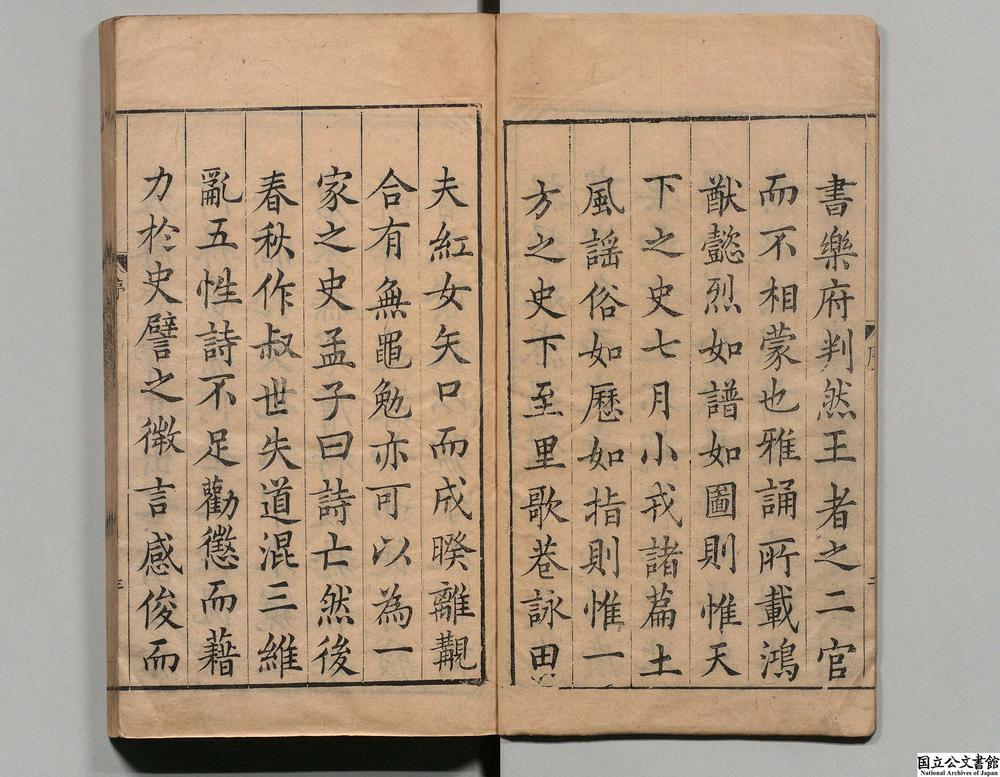 書樂府判然王者之二官
而不相蒙也雅誦所載鴻
猷懿烈如譜如圖則惟天
下之史七月小戎諸篇土
風謡俗如歷如指則惟一
方之史下至里歌巷詠田
夫紅女矢口而成睽離覯
合有無黽勉亦可以為一
家之史孟子曰詩亡然後
春秋作叔世失道混三維
亂五性詩不足勸懲而藉
力於史譬之微言感俊而
序
三
国立公文書館
National Archives of Japan